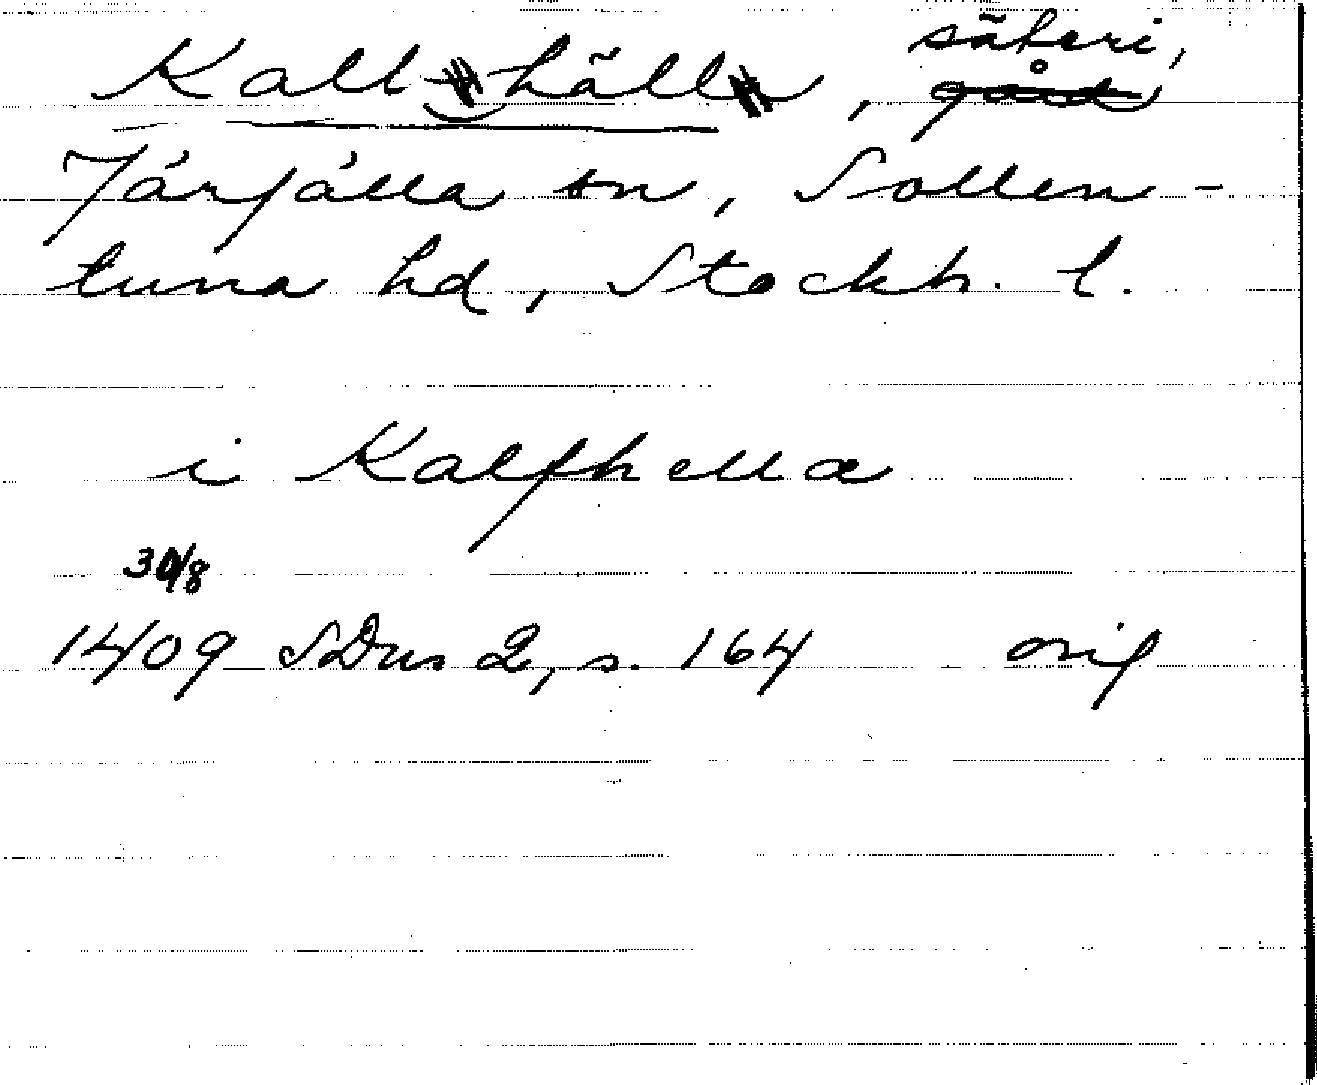 säteri,
Kallhäll, gård
Järfälla sn, Sollen-
tuna hd, Stockh. l.
i Kalfhella
30/8
1409 SDns 2, s. 164 orig